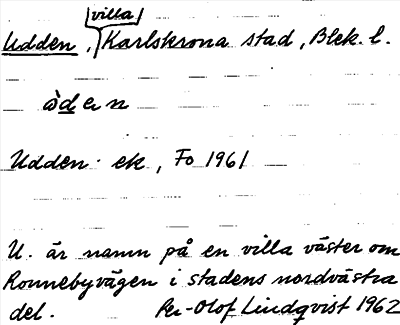 villa
Udden, Karlskrona stad, Blek. l.
ùden
Udden: ek, Fo 1961
U. är namn på en villa väster om
Ronnebyvägen i stadens nordvästra
del. Per-Olof Lindqvist 1962